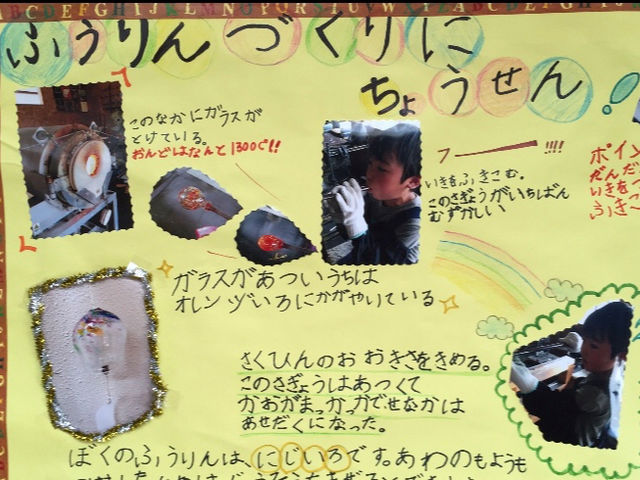 ふうりんづくりに
ちょうせん!
このなかにガラスが
とけている。
おんどはなんと1300℃!!
フー━━!!!!
いきをふきこむ。
このさぎょうがいちばん
むずかしい
ポイン
だんだ
いきを
ふきこ
ガラスがあついうちは
オレンヅいろにかがやいている
さくひんのおおきさをきめる。
このさぎょうはあつくて
かおがまっかっかでせなかは
あせだくになった。
ぼくのふうりんは、にじいろです。あわのもようも